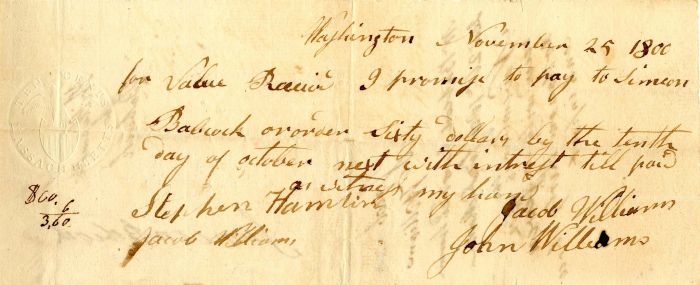 Washington November 25 1800
for Value Receivd I promise to pay to Simeon
Babcock or order Sixty dollars by the tenth
day of october next with intrest till paid
as witness my hand
Stephen Hamlin
Jacob Williams
Jacob Williams
John Williams
$60.
6
3,60.